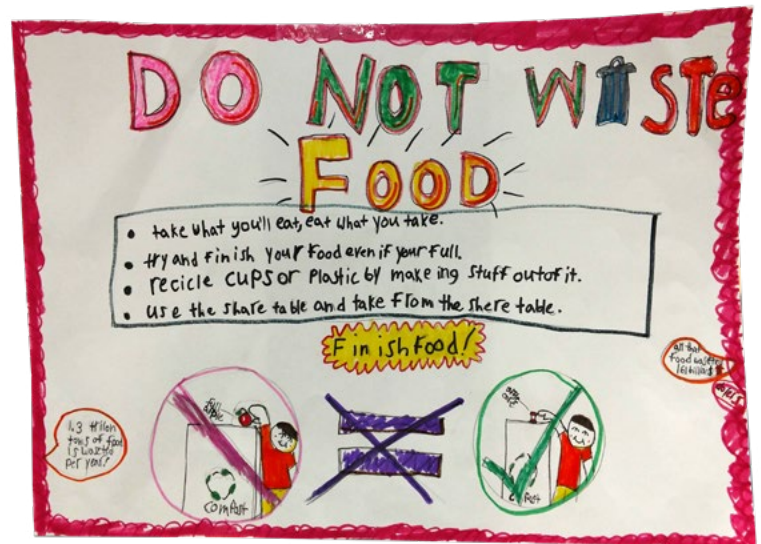 DO NOT WASTe
FOOD
• take what you'll eat, eat what you take.
• try and finish your food even if your full.
• recicle cups or plastic by makeing stuff out of it.
• use the share table and take from the shere table.
Finish Food!
all that
food waste
1.3 trillion
tons of food
is wasted
per year!
full
apple
compost
apple
core